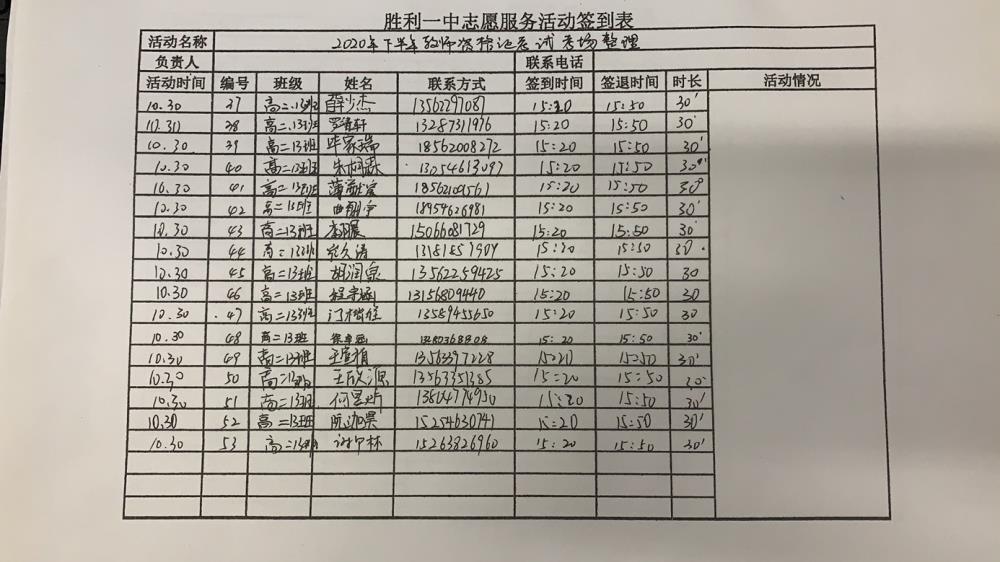 胜利一中志愿服务活动签到表
活动名称 2020年下半年教师资格证考试考场整理
负责人 联系电话
活动时间 编号 班级 姓名 联系方式 签到时间 签退时间 时长 活动情况
10.30 37 高二.13班 薛少杰 13562297087 15:20 15:50 30'
10.30 38 高二.13班 13287311976 15:20 15:50 30'
10.30 39 高二13班 毕家瑞 18562008272 15:20 15:50 30'
10.30 40 高二13班 13054613097 15:20 15:50 30'
10.30 41 高二13班 18562109561 15:20 15:50 30'
10.30 42 高二13班 18954626981 15:20 15:50 30'
10.30 43 高二13班 15066081729 15:20 15:50 30'
10.30 44 高二13班 15:20 15:50 30'
10.30 45 高二13班 胡润泉 13562259425 15:20 15:50 30
10.30 46 高二13班 13156809440 15:20 15:50 30
10.30 47 高二13班 13589455650 15:20 15:50 30
10.30 48 高二13班 15:20 15:50 30'
10.30 49 高二13班 13563397228 15:20 15:50 30'
10.30 50 高二13班 王欣源 13563351385 15:20 15:50 30'
10.30 51 高二13班 15:20 15:50 30'
10.30 52 高二13班 15254630741 15:20 15:50 30'
10.30 53 高二13班 15263826960 15:20 15:50 30'